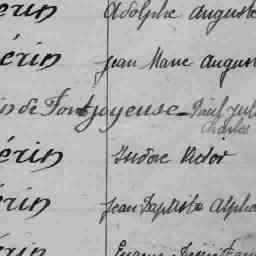 erin Adolphe Auguste
érin Jean Marie August
in de Fontjoyeuse Paul Jul
Charles
érin Isidore Victor
érin Jean Baptiste Alpho
érin Eugène